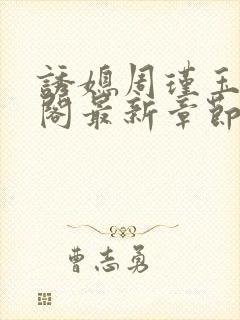 誘媳周瑾玉
閣最新章節
曹志勇